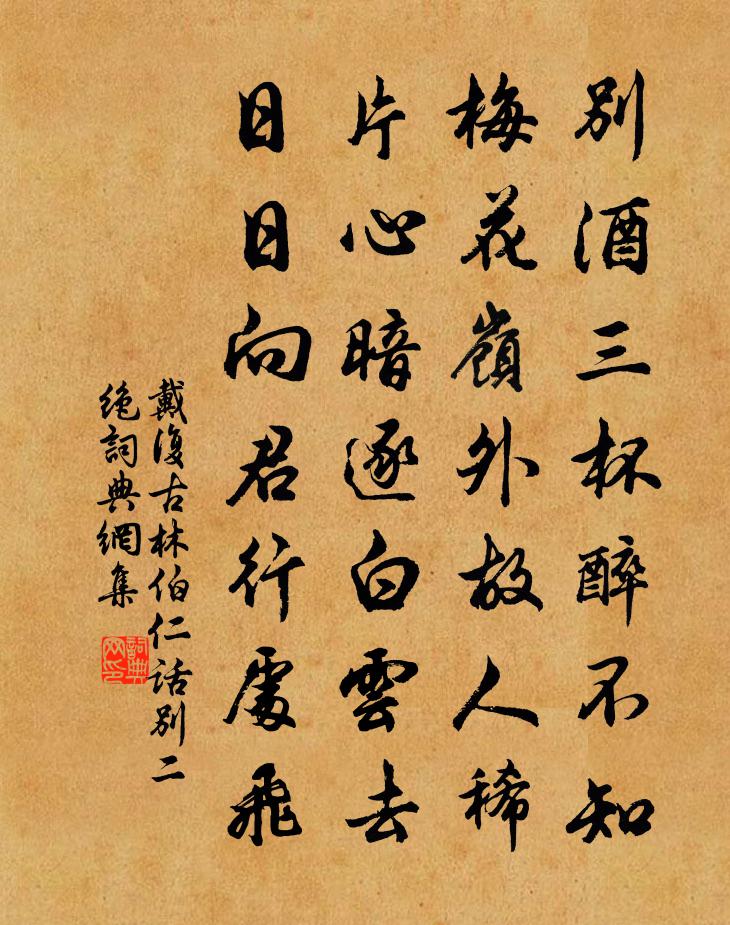 別酒三杯醉不知
梅花嶺外故人稀
片心暗逐白雲去
日日向君行處飛
戴復古林伯仁話別二
絶詞典網集
詞典
网印